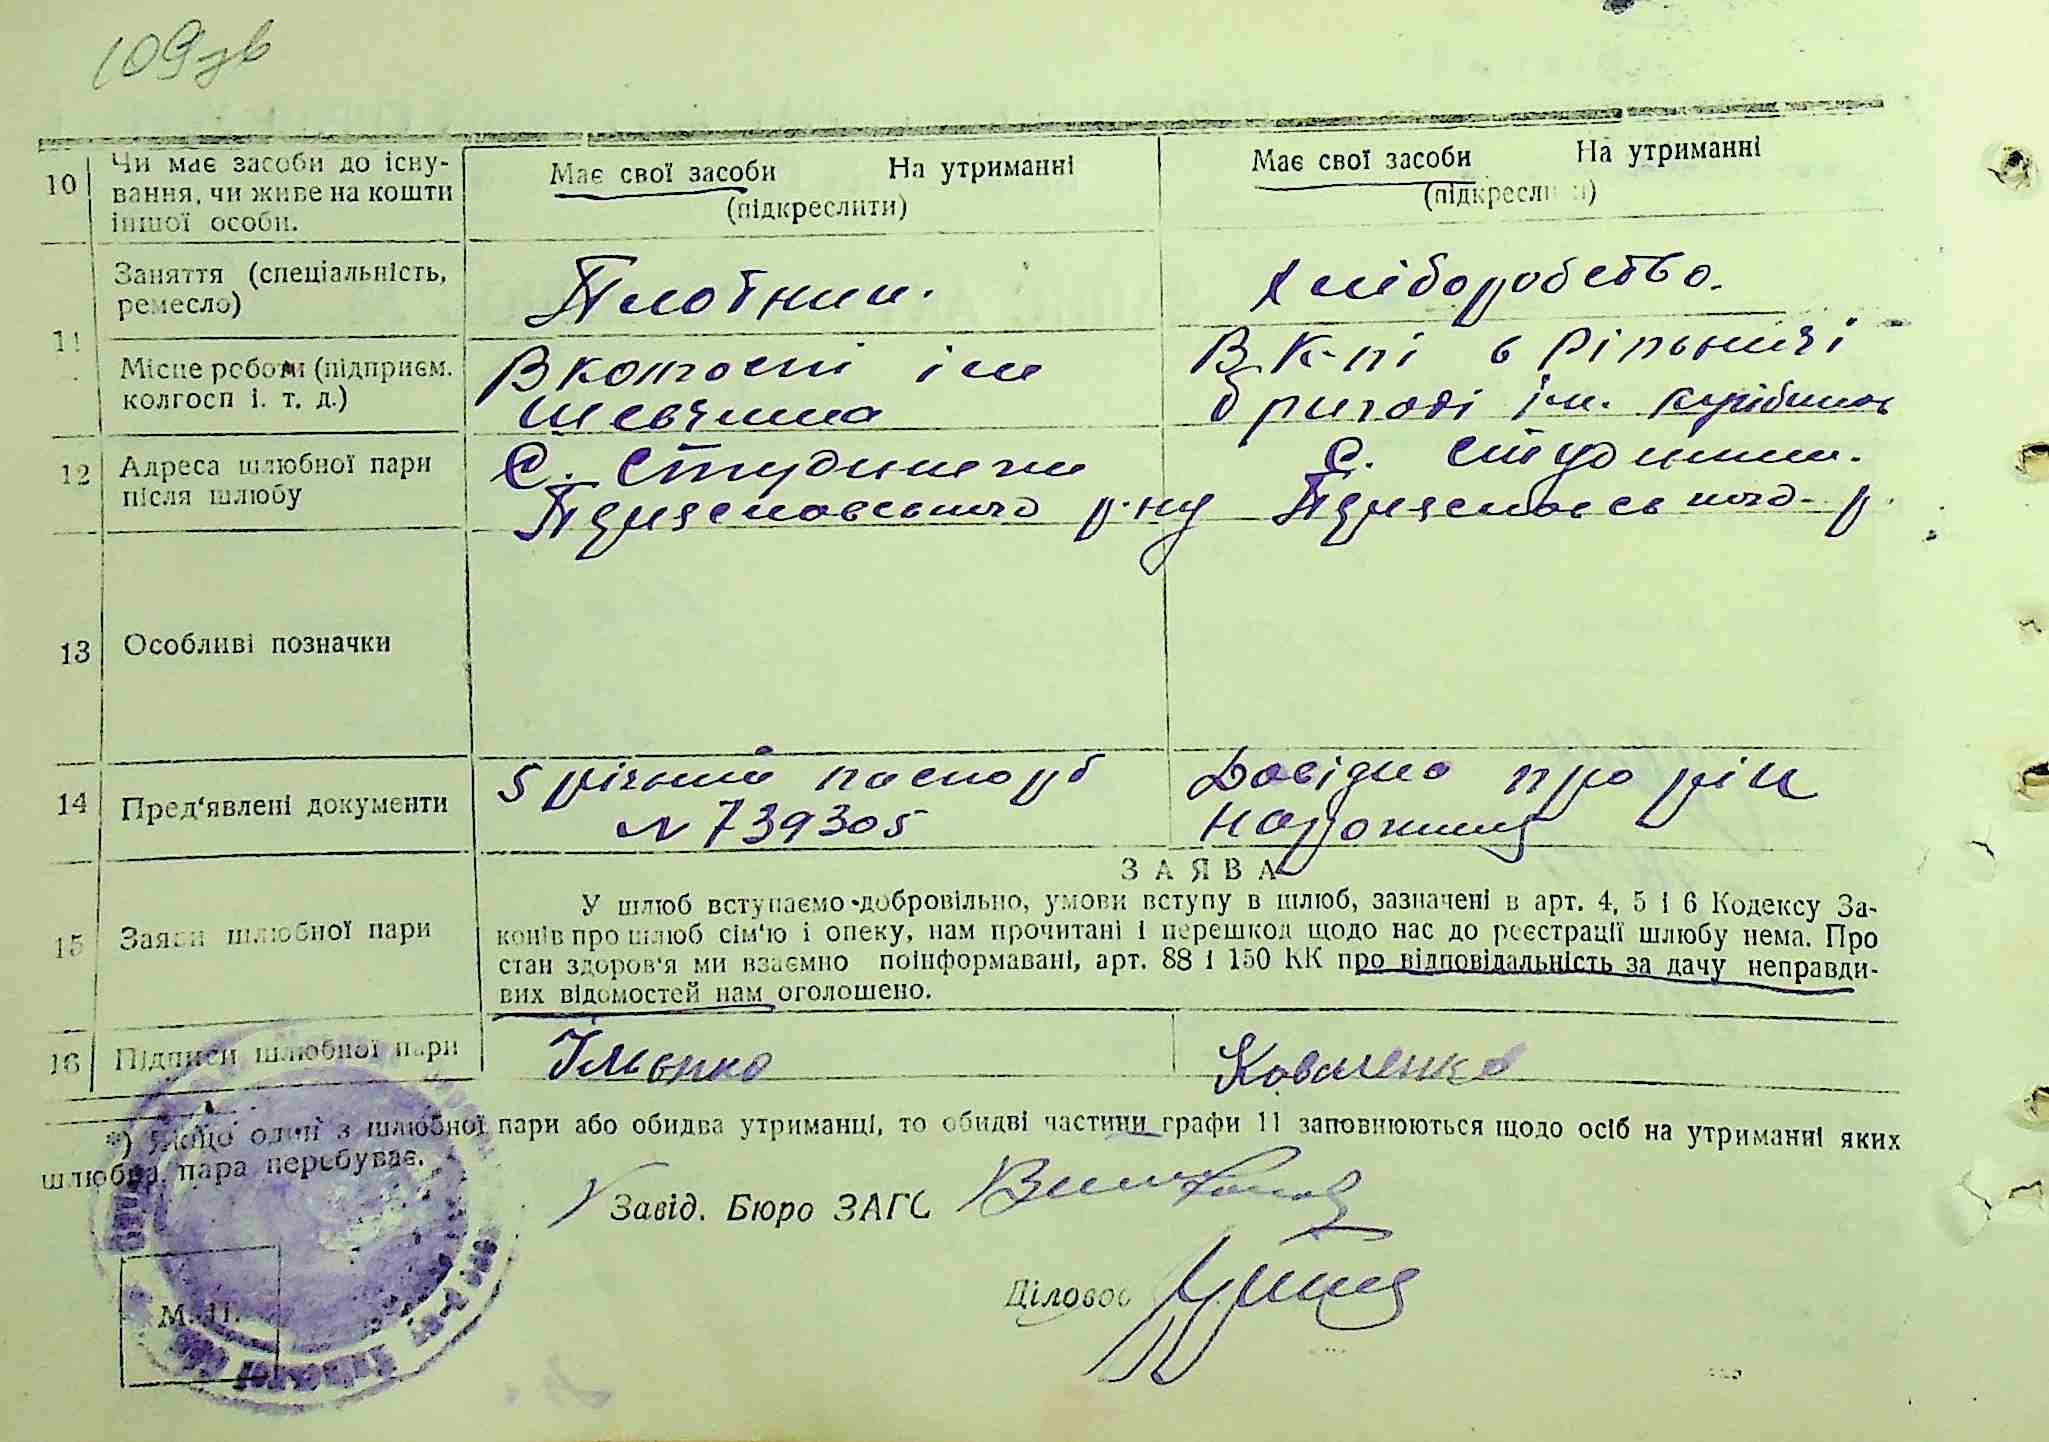 109зв
10 Чи має засоби до існу-
вання, чи живе на кошти
іншої особи.
Має свої засоби На утриманні
(підкреслити)
Має свої засоби На утриманні
(підкреслити)
11 Заняття (спеціальність,
ремесло)
Плотник.
Хліборобство.
Місце роботи (підприєм.
колгосп і. т. д.)
В колгоспі ім
Шевченка
В К-пі в рільничі
бригаді ім.
12 Адреса шлюбної пари
після шлюбу
С. Студеники
р-ну
С. Студеники.
р.
13 Особливі позначки
14 Пред'явлені документи
5 річний паспорт
№ 739305
Довідка про рік
народження
ЗАЯВА
15 Заяви шлюбної пари
У шлюб вступаємо добровільно, умови вступу в шлюб, зазначені в арт. 4, 5 і 6 Кодексу За-
конів про шлюб сім'ю і опеку, нам прочитані і перешкод щодо нас до реєстрації шлюбу нема. Про
стан здоров'я ми взаємно поінформавані, арт. 88 і 150 КК про відповідальність за дачу неправди-
вих відомостей нам оголошено.
16 Підписи шлюбної пари
Ільєнко
Коваленко
*) Якщо один з шлюбної пари або обидва утриманці, то обидві частини графи 11 заповнюються щодо осіб на утриманні яких
шлюбна пара перебуває.
Завід. Бюро ЗАГС
Діловод
М. П.